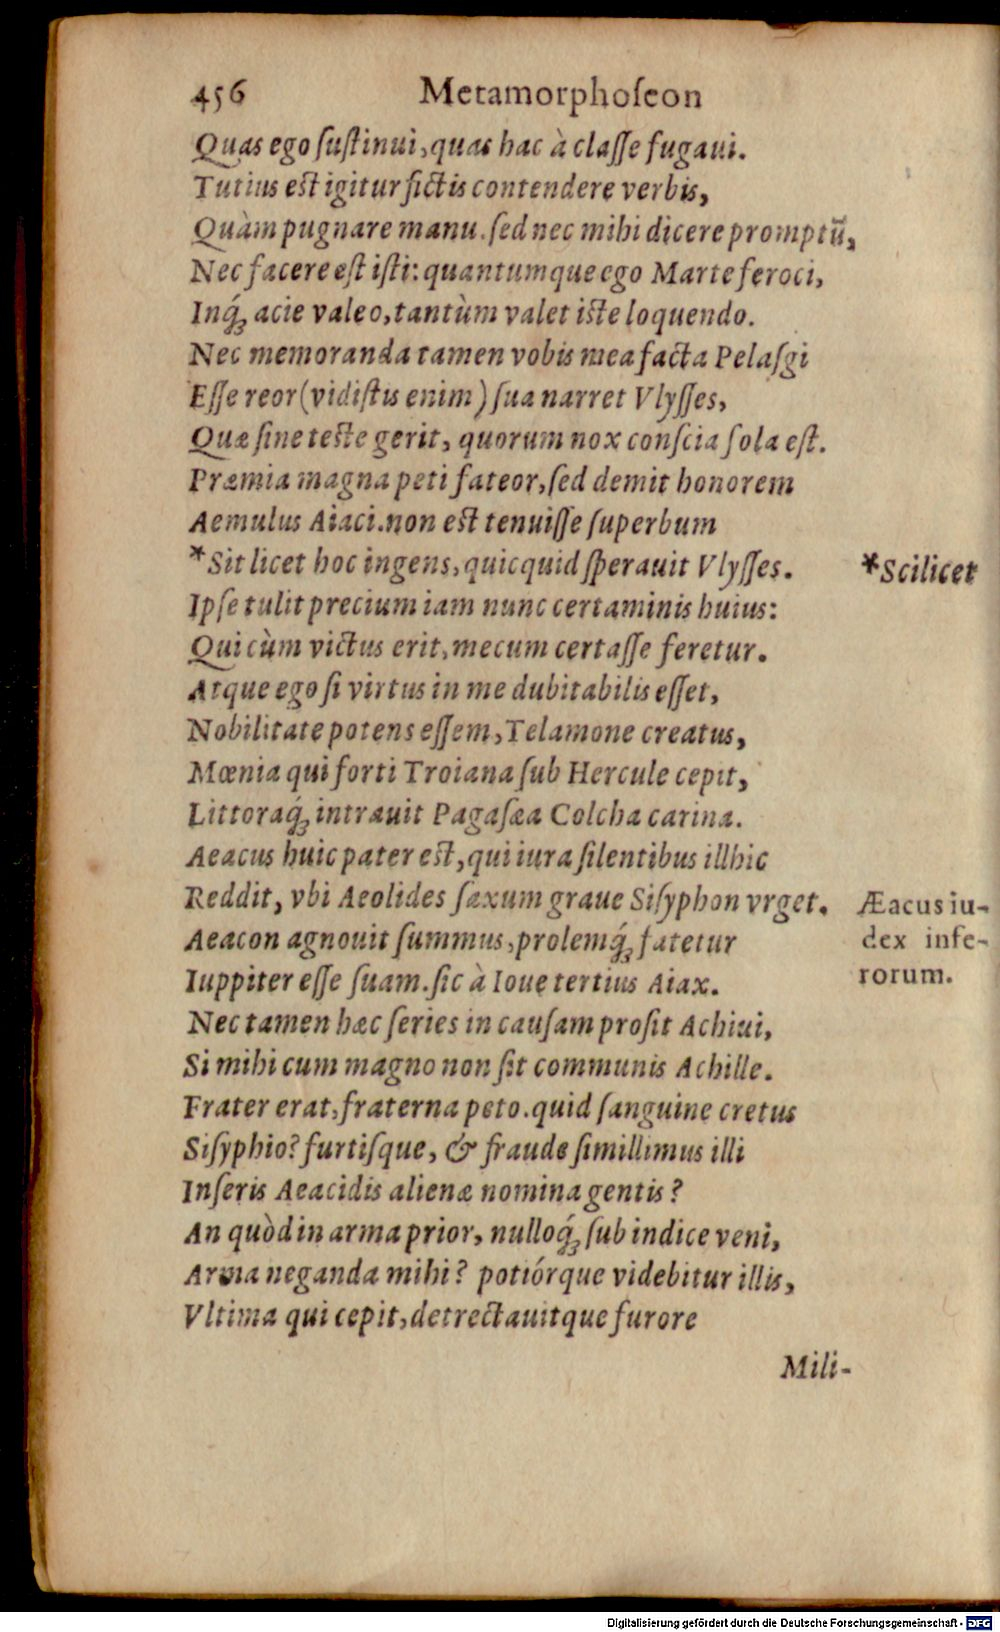 456 Metamorphoſeon
Quas ego ſuſtinui, quas hac à claſſe fugaui.
Tutius est igitur fictis contendere verbis,
Quàm pugnare manu. ſed nec mihi dicere promptũ,
Nec facere est iſti: quantumque ego Marte feroci,
Inq́; acie valeo, tantùm valet iste loquendo.
Nec memoranda tamen vobis mea facta Pelaſgi
Eſſe reor (vidiſtis enim) ſua narret Vlyſſes,
Quæ ſine teste gerit, quorum nox conſcia ſola eſt.
Præmia magna peti fateor, ſed demit honorem
Aemulus Aiaci. non est tenuiſſe ſuperbum
*Sit licet hoc ingens, quicquid ſperauit Vlyſſes.
*Scilicet
Ipſe tulit precium iam nunc certaminis huius:
Qui cùm victus erit, mecum certaſſe feretur.
Atque ego ſi virtus in me dubitabilis eſſet,
Nobilitate potens eſſem, Telamone creatus,
Mœnia qui forti Troiana ſub Hercule cepit,
Littoraq́; intrauit Pagaſæa Colcha carina.
Aeacus huic pater est, qui iura ſilentibus illhic
Reddit, vbi Aeolides ſaxum graue Siſyphon vrget.
Æacus iu-
dex infe-
rorum.
Aeacon agnouit ſummus, prolemq́; fatetur
Iuppiter eſſe ſuam. ſic à Ioue tertius Aiax.
Nec tamen hæc ſeries in cauſam proſit Achiui,
Si mihi cum magno non ſit communis Achille.
Frater erat, fraterna peto. quid ſanguine cretus
Siſyphio? furtiſque, & fraude ſimillimus illi
Inſeris Aeacidis alienæ nomina gentis?
An quòd in arma prior, nulloq́; ſub indice veni,
Arma neganda mihi? potiórque videbitur illis,
Vltima qui cepit, detrectauitque furore
Mili-
Digitalisierung gefördert durch die Deutsche Forschungsgemeinschaft - DFG